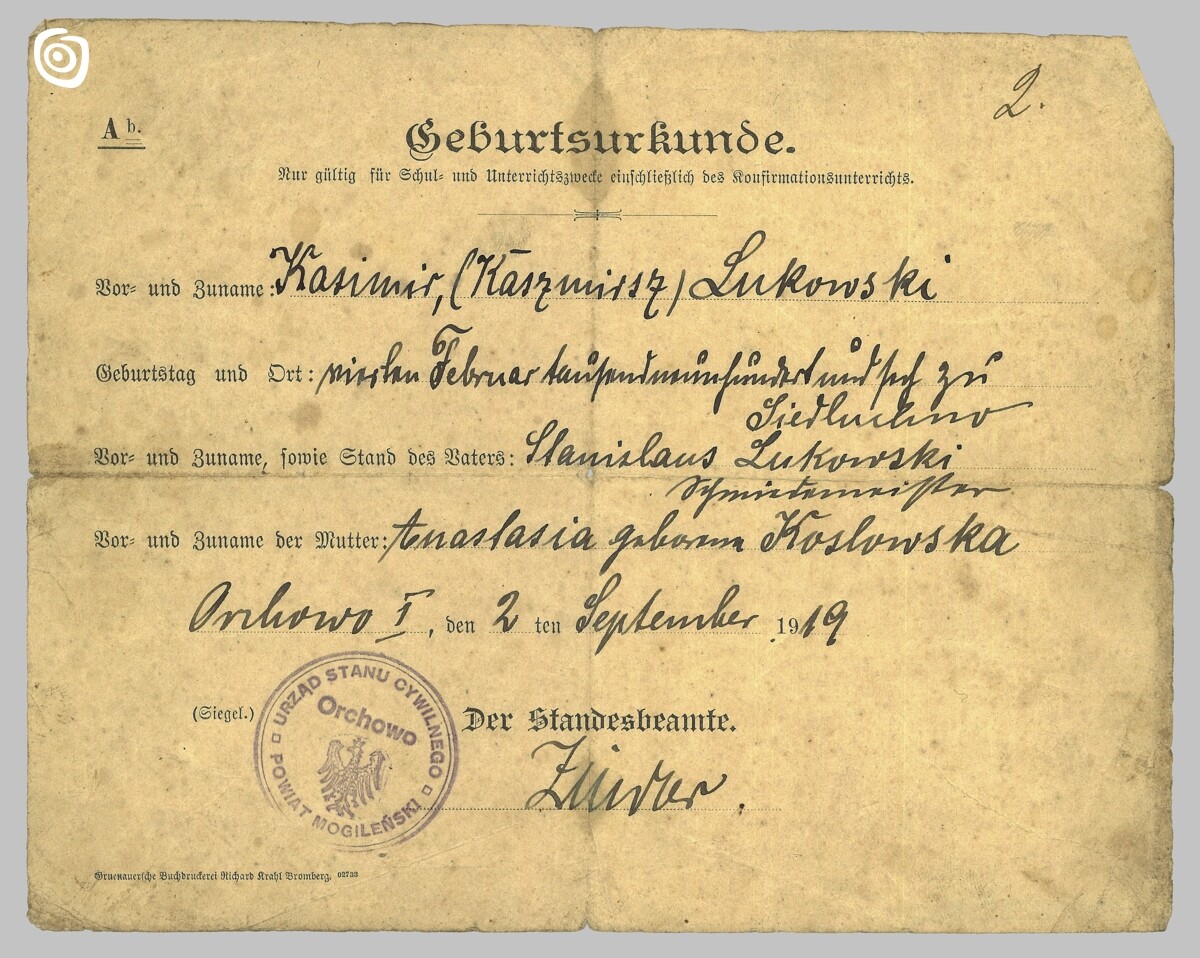 2.
A b.
Geburtsurkunde.
Nur gültig für Schul- und Unterrichtszwecke einschließlich des Konfirmationsunterrichts.
Vor- und Zuname: Kasimir, (Kaszmirsz) Lukowski
Geburtstag und Ort: vierten Februar tausendneunhundert und sech zu
Siedluchno
Vor- und Zuname, sowie Stand des Vaters: Stanislaus Lukowski
Schmiedemeister
Vor- und Zuname der Mutter: Anastasia geborene Koslowska
Orchowo I, den 2 ten September 1919
(Siegel.)
URZĄD STANU CYWILNEGO
Orchowo
POWIAT MOGILEŃSKI
Der Standesbeamte.
Gruenauersche Buchdruckerei Richard Krahl Bromberg. 02733